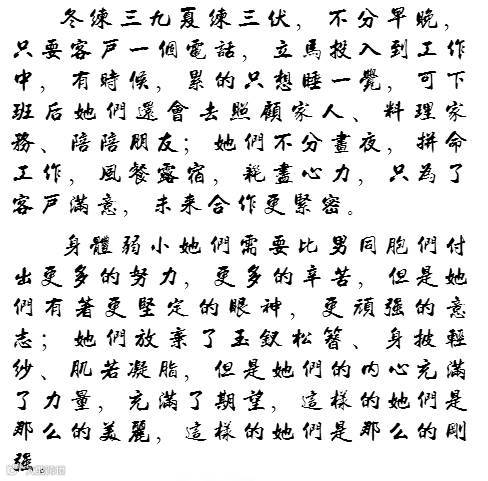 冬練三九夏練三伏，不分早晚，
只要客戶一個電話，立馬投入到工作
中，有時候，累的只想睡一覺，可下
班后她們還會去照顧家人、料理家
務、陪陪朋友；她們不分晝夜，拼命
工作，風餐露宿，耗盡心力，只為了
客戶滿意，未來合作更緊密。
身體弱小她們需要比男同胞們付
出更多的努力，更多的辛苦，但是她
們有著更堅定的眼神，更頑强的意
志；她們放棄了玉釵松簪、身披輕
紗、肌若凝脂，但是她們的内心充滿
了力量，充滿了期望，這樣的她們是
那么的美麗，這樣的她們是那么的剛
强。